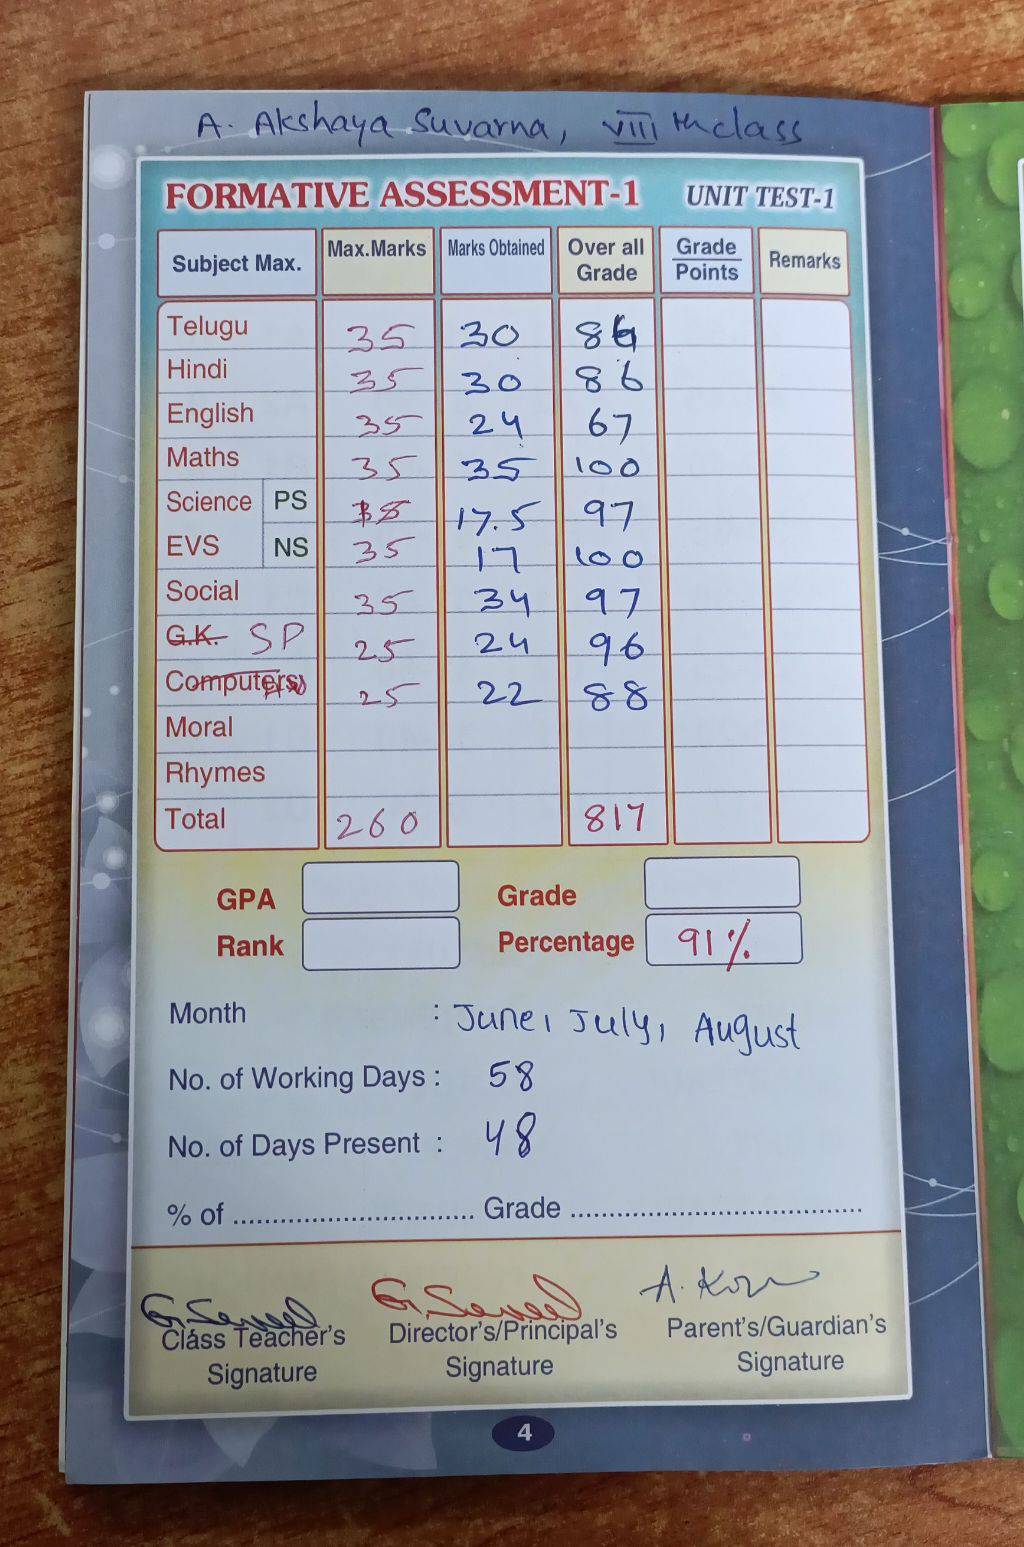 A. Akshaya Suvarna, VIII th class
FORMATIVE ASSESSMENT-1 UNIT TEST-1
Subject Max. Max.Marks Marks Obtained Over all Grade Grade Points Remarks
Telugu 35 30 86
Hindi 35 30 86
English 35 24 67
Maths 35 35 100
Science PS 17.5 97
EVS NS 35 17 100
Social 35 34 97
G.K. SP 25 24 96
Computers 25 22 88
Moral
Rhymes
Total 260 817
GPA Grade
Rank Percentage 91%
Month : June, July, August
No. of Working Days : 58
No. of Days Present : 48
% of .............................. Grade ....................................
G. A.
Class Teacher's Signature Director's/Principal's Signature Parent's/Guardian's Signature
4